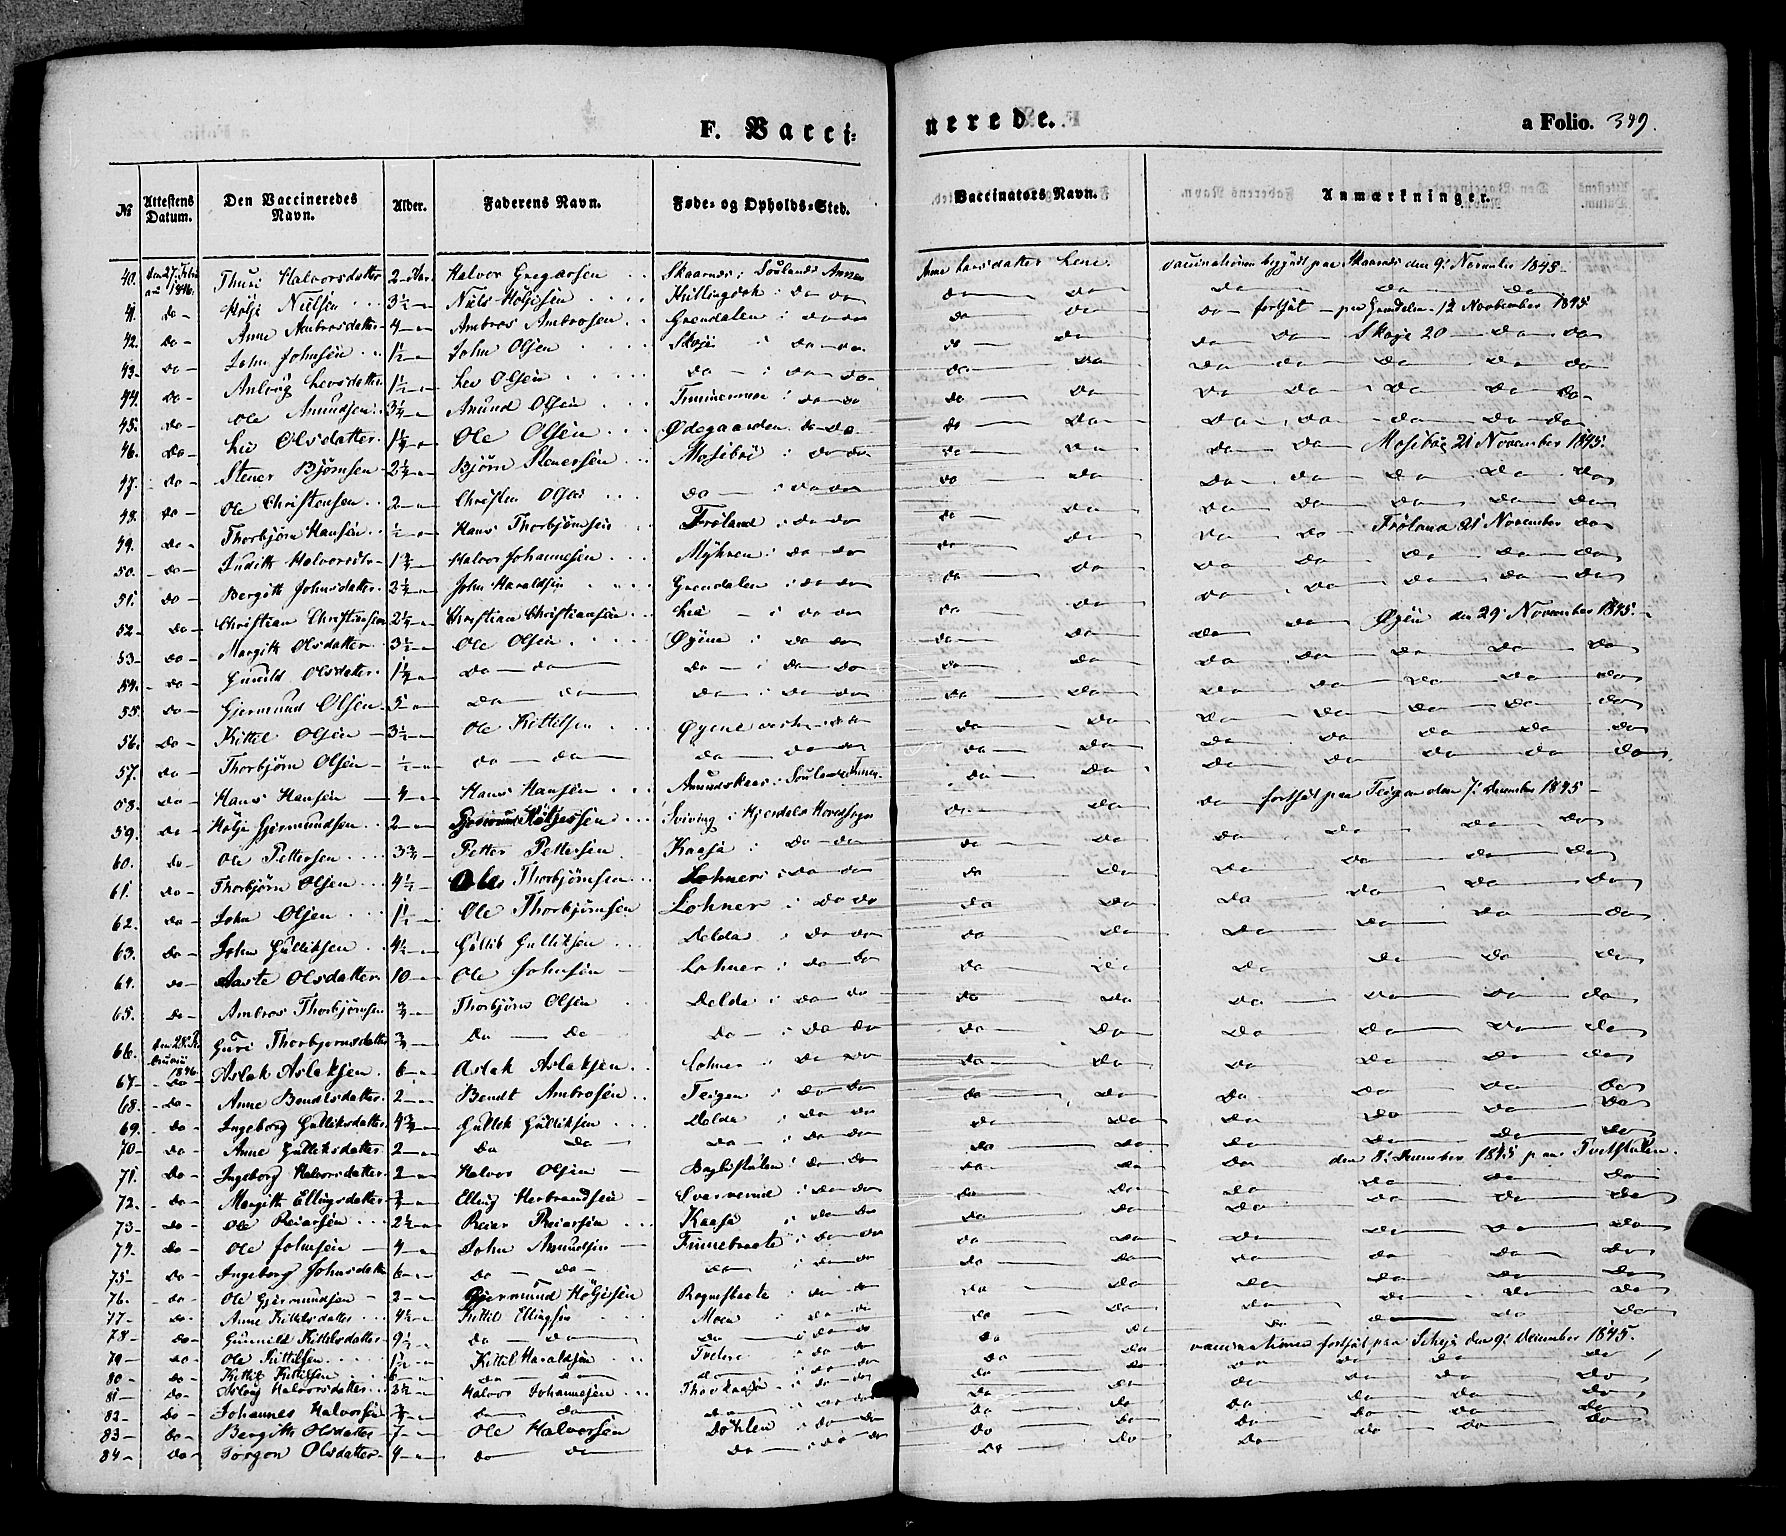 F. Vacci-
nerede.
a Folio. 349.
№ | Attestens Datum. | Den Vaccineredes Navn. | Alder. | Faderens Navn. | Føde- og Opholds-Sted. | Vaccinators Navn. | Anmærkninger.
40. | den 27. Febru | Thuri Halvorsdatter | 2 Aar | Halvor Gregarsen | Skaarnes i Soulands Annex | Anne Larsdatter Lene. | vaccinationen begyndt paa Skaarnes den 9. November 1845
41. | do | Holje Nielsen | 3½ | Niels Höljesen | i do do | do do | do do do
42. | do | Anne Ambrosdatter | 4 | Ambros Ambrosen | Grendalen i do do | do do | do fortsat paa Grendalen 12 November 1845
43. | do | John Johnsen | 1½ | John Olsen | Skoje i do do | do do | do do Skoje 20 do do
44. | do | Levsdatter | 1½ | Lev Olsen | do i do do | do do | do do do do do
45. | do | Ole Amundsen | Amund Olsen | i do do | do do | do do do do do
46. | do | Liv Olsdatter | Ole Olsen | Ødegaarden do do | do do | do do do do do
47. | do | Stener Bjørnsen | Bjørn Stenersen | Mosebøe i do do | do do | do do Mosebøe 21 November 1845.
48. | do | Ole Christensen | 2 | Christen Olsen | do i do do | do do | do do do do do
49. | do | Thorbjørn Hansen | ½ | Hans Thorbjørnsen | Frøland i do do | do do | do do Frøland 21 November do
50. | do | Judith Halvorsdtr | Halvor Johannesen | Myhren i do do | do do | do do do do do
51. | do | Bergith Johnsdatter | John Haraldsen | Grendalen i do do | do do | do do do do do
52. | do | Christian Christiansen | Christian Christiansen | Lie i do do | do do | do do do do do
53. | do | Margith Olsdatter | 3½ | Ole Olsen | Øyene i do do | do do | do do Øyen den 29. November 1845.
54. | do | Gunild Olsdatter | do do | do i do do | do do | do do do do do
55. | do | Gjermund Olsen | 5 | do do | do i do do | do do | do do do do do
56. | do | Kittel Olsen | 3½ | Ole Kittilsen | Øyene do | do do | do do do do do
57. | do | Thorbjørn Olsen | ½ | do do | do do do | do do | do do do do do
58. | do | Hans Hansen | 4 | Hans Hansen | Amundskaas i Soulands Annex | do do | do fortsat paa Teigen den 7. december 1845
59. | do | Holje Gjermundsen | 2 | Gjermund Höljesen | Sviving i Hjerdals Hovedsogn | do do | do do do do
60. | do | Ole Pettersen | 3¾ | Petter Pettersen | Kaasa i do do | do do | do do do do
61. | do | Thorbjørn Olsen | 4½ | Ole Thorbjørnsen | Lohner i do do | do do | do do do do
62. | do | John Olsen | 1½ | Ole Thorbjørnsen | Lohner i do do | do do | do do do do
63. | do | John Gulliksen | Gullik Gulliksen | Delda i do do | do do | do do do do
64. | do | Aaste Olsdatter | 10 | Ole Johnsen | Lohner i do do | do do | do do do do
65. | do | Ambros Thorbjørnsen | ¾ | Thorbjørn Olsen | Delda i do do | do do | do do do do
66. | den 28. Fe bruari 1846 | Guri Thorbjornsdatter | ¾ | do do | do i do do | do do | do do do do
67. | do | Aslak Aslaksen | 6 | Aslak Aslaksen | Lohner i do do | do do | do do do do
68. | do | Anne Bendtsdatter | 2 | Bendt Ambrosen | Teigen i do do | do do | do do do do
69. | do | Ingeborg Gulliksdatter | 4¾ | Gullik Gulliksen | Delda i do do | do do | do do do do
70 | do | Anne Gulliksdatter | 2 | do do | do i do do | do do | do do do do
71. | do | Ingeborg Halvorsdatter | 2 | Halvor Olsen | i do do | do do | do den 8. December 1845 paa
72. | do | Margith Ellingsdatter | Elling Herbrandsen | i do do | do do | do do do do
73 | do | Ole Reiarsen | 2½ | Reiar Reiarsen | Kaasa i do do | do do | do do do do
74 | do | Ole Johnsen | 4 | John Amundsen | Finnebraate i do do | do do | do do do do
75 | do | Ingeborg Johnsdatter | 6 | do do | do i do do | do do | do do do do
76. | do | Ole Gjermundsen | 2 | Gjermund Höljesen | i do do | do do | do do do do
77 | do | Anne Kittilsdatter | Kittil Ellingsen | Moen i do do | do do | do do do do
78 | do | Gunnild Kittelsdatter | 9½ | do do | do i do do | do do | vaccinationen fortsat paa den 9. december 1845.
79 | do | Ole Kittilsen | 1½ | Kittil Haraldsen | i do do | do do | do do do do
80 | do | Kittil Kittilsen | 6 | do do | do i do do | do do | do do do do
81 | do | Halvorsdatter | 3½ | Halvor Johannesen | i do do | do do | do do do do
82 | do | Johannes Halvorsen | ¾ | do do | do i do do | do do | do do do do
83 | do | Bergith Olsdatter | 7 | Ole Halvorsen | Døhlen i do do | do do | do do do do
84 | do | Jorgon Olsdatter | 4 | do do | do i do do | do do | do do do do